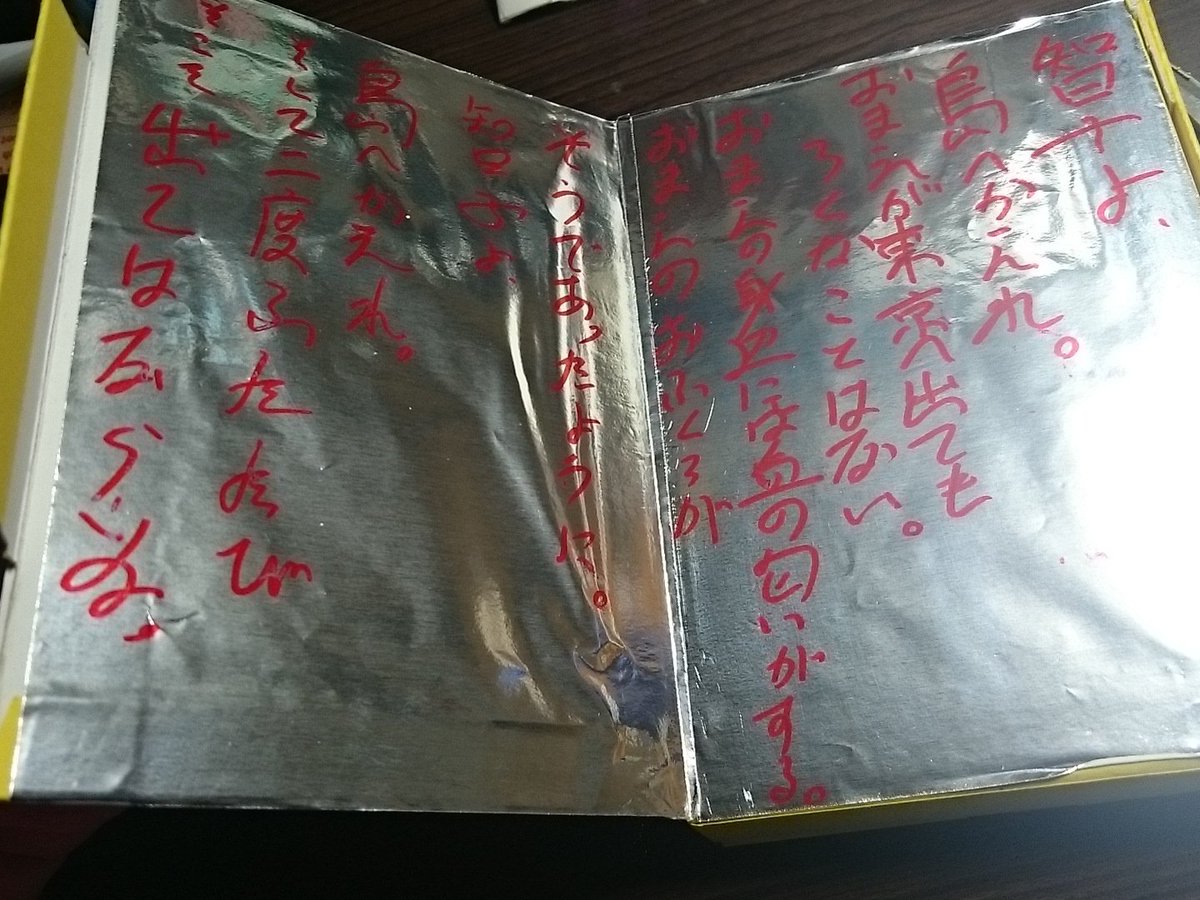 智子よ、
島へかえれ。
おまえが東京へ出ても
ろくなことはない。
おまえの身血には血の匂いがする。
おまえのおふくろが
そうであったように。
智子よ、
島へかえれ。
そして二度ふたたび
そこを出てはならぬ。